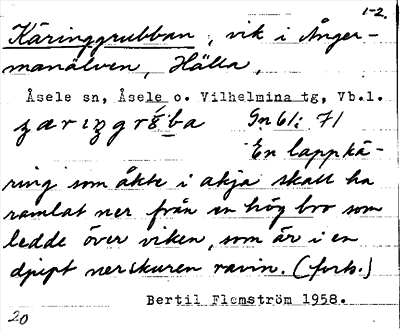 1-2.
Käringgrubban, vik i Ånger-
manälven, Hälla,
Åsele sn, Åsele o. Vilhelmina tg, Vb.l.
Gn 61: 71
En lappkä-
ring som åkte i akja skall ha
ramlat ner från en hög bro som
ledde över viken, som är i en
djupt nerskuren ravin. (forts.)
Bertil Flemström 1958.
20